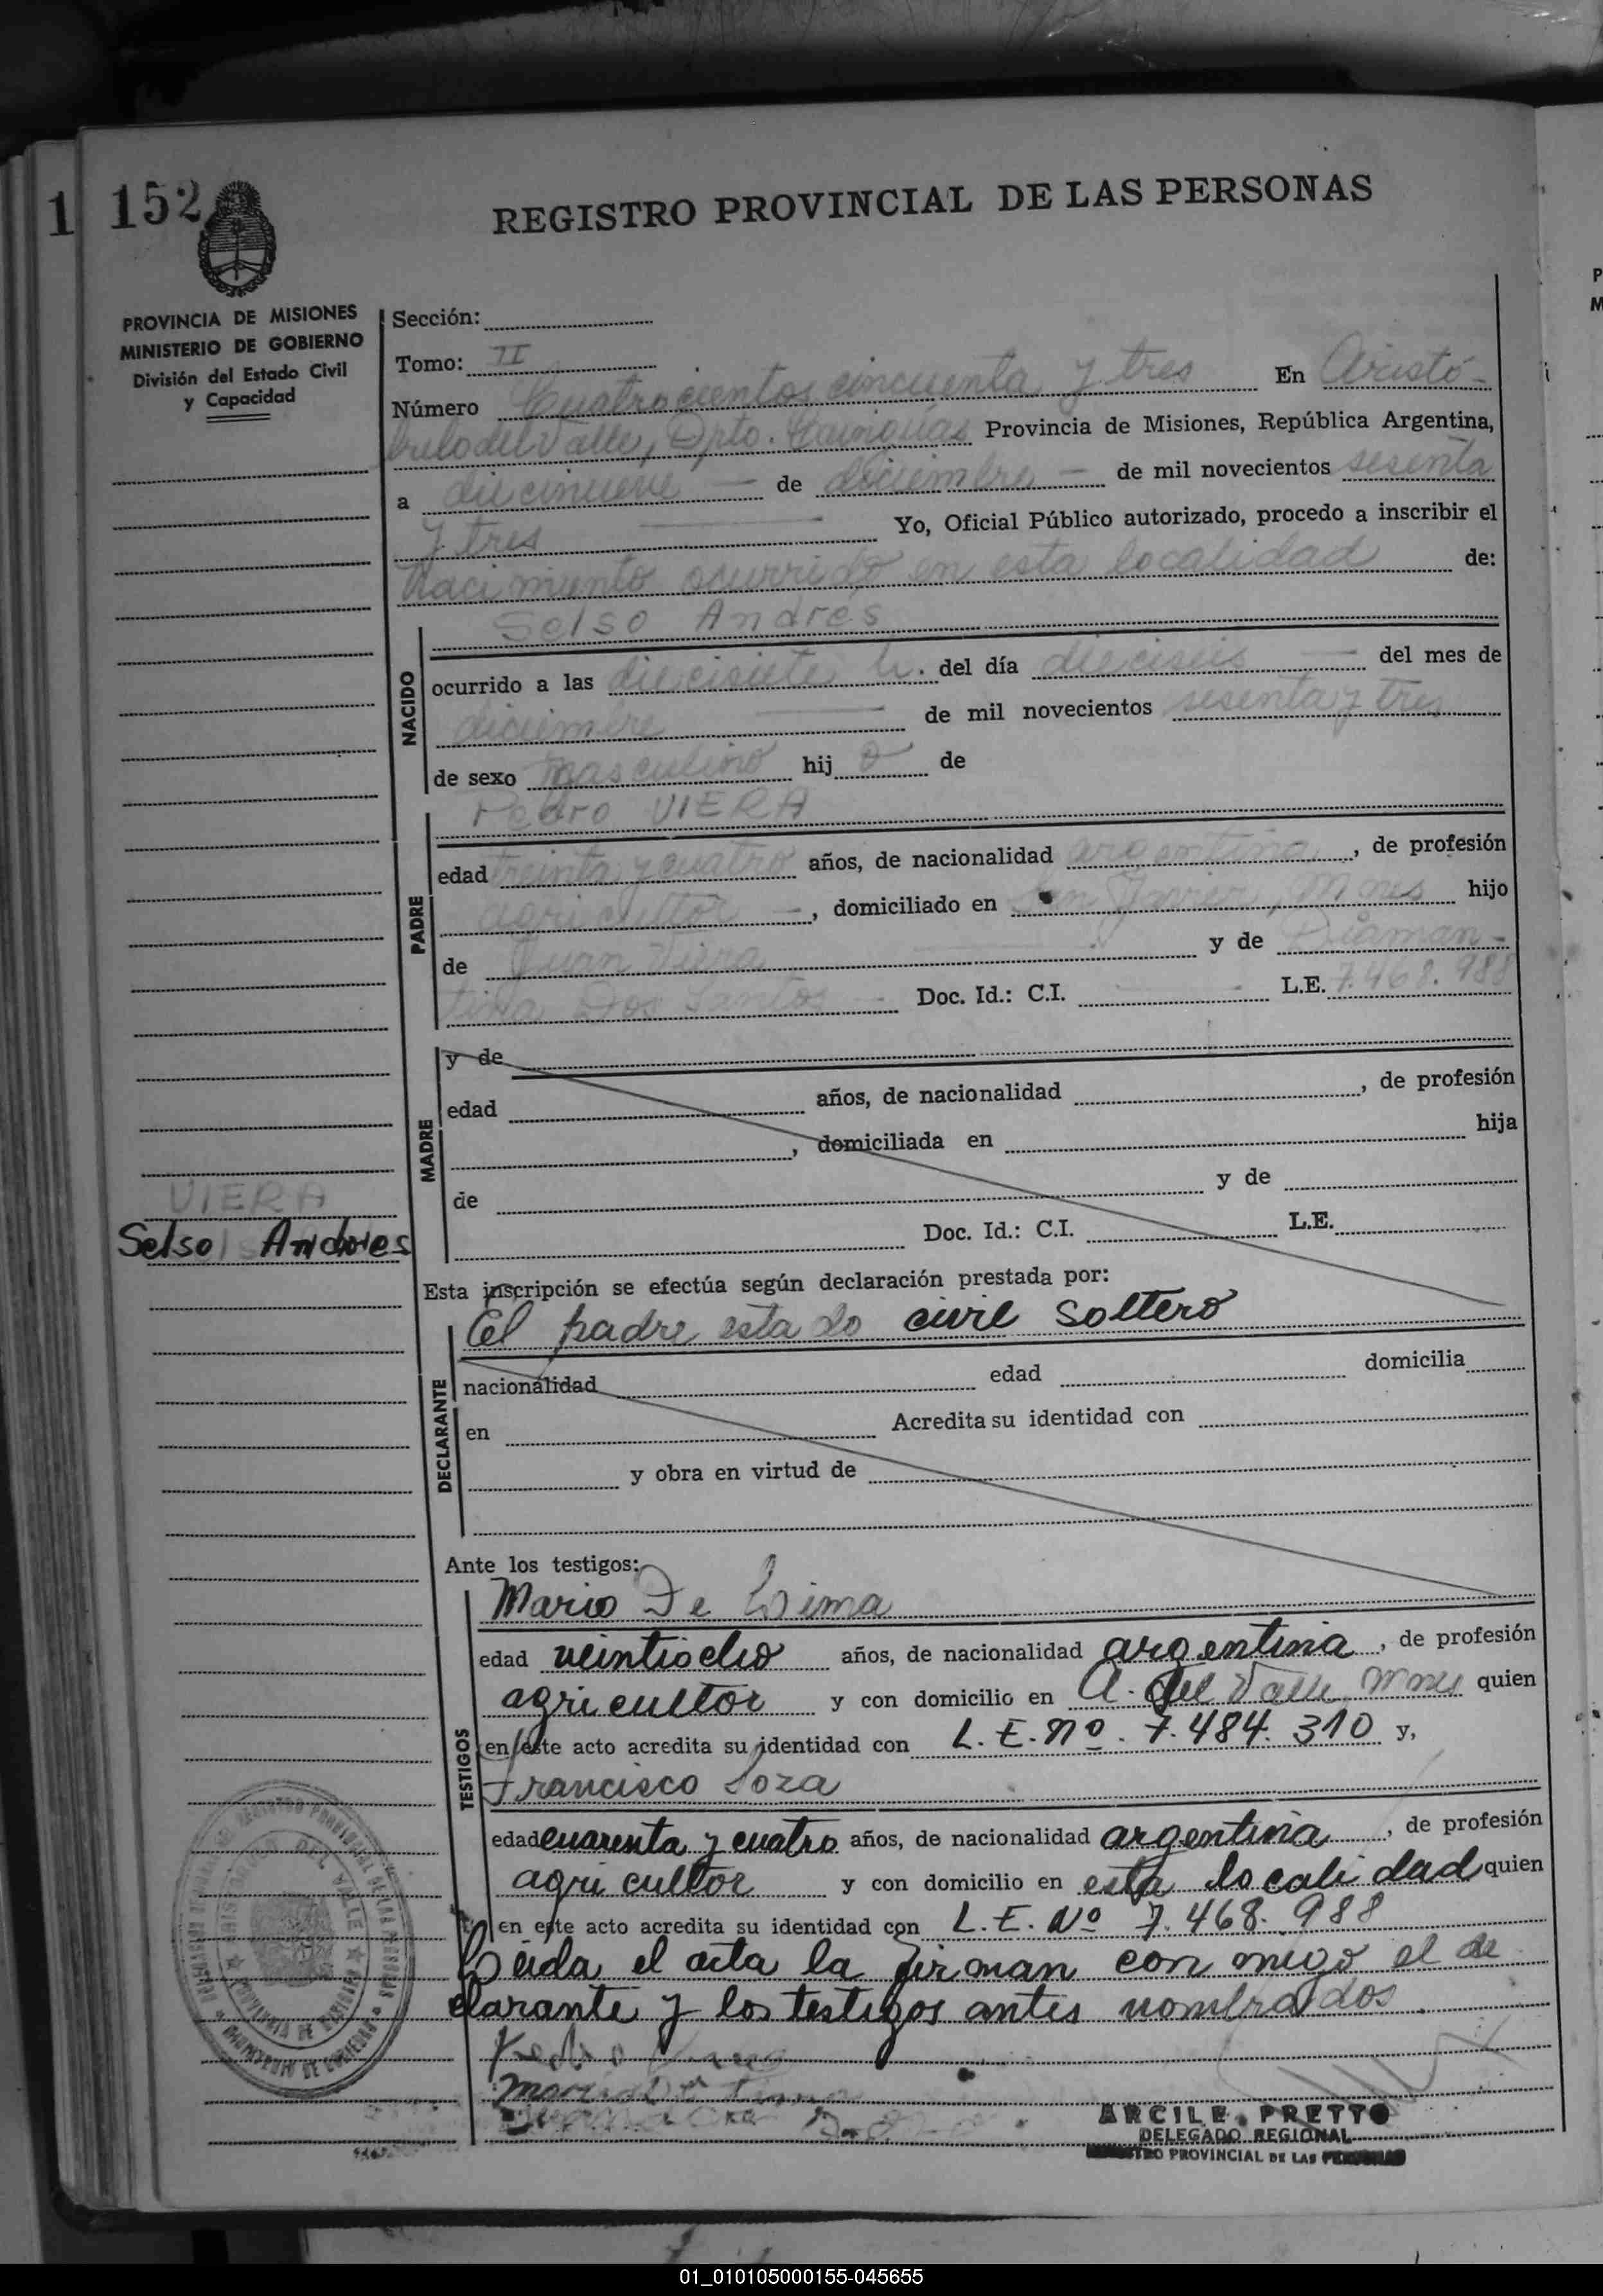 1 152
REGISTRO PROVINCIAL DE LAS PERSONAS
PROVINCIA DE MISIONES
MINISTERIO DE GOBIERNO
División del Estado Civil
y Capacidad
Sección:
Tomo: II
Número Cuatrocientos cincuenta y tres En Aristó-
bulo del Valle, Dpto. Cainguás Provincia de Misiones, República Argentina,
a diecinueve — de diciembre — de mil novecientos sesenta
y tres Yo, Oficial Público autorizado, procedo a inscribir el
Nacimiento ocurrido en esta localidad de:
Selso Andrés
NACIDO
ocurrido a las diecisiete h. del día dieciseis — del mes de
diciembre — de mil novecientos sesenta y tres
de sexo masculino hij o de
Pedro VIERA
PADRE
edad treinta y cuatro años, de nacionalidad argentina, de profesión
agricultor —, domiciliado en San Javier, Mnes hijo
de Juan Viera y de Diaman-
tina Dos Santos — Doc. Id.: C.I. L.E. 7.468.988
MADRE
y de
edad años, de nacionalidad , de profesión
, domiciliada en hija
de y de
Doc. Id.: C.I. L.E.
VIERA
Selso Andres
Esta inscripción se efectúa según declaración prestada por:
El padre estado civil soltero
DECLARANTE
nacionalidad edad domicilia
en Acredita su identidad con
y obra en virtud de
Ante los testigos:
Mario De Lima
TESTIGOS
edad veintiocho años, de nacionalidad argentina, de profesión
agricultor y con domicilio en A. del Valle, Mnes quien
en este acto acredita su identidad con L.E. Nº. 7.484.310 y,
Francisco Soza
edad cuarenta y cuatro años, de nacionalidad argentina, de profesión
agricultor y con domicilio en esta localidad quien
en este acto acredita su identidad con L.E. Nº 7.468.988
Leida el acta la firman con migo el de
clarante y los testigos antes nombrados.
Pedro Viera
Mario De Lima
ARCILE PRETTO
DELEGADO REGIONAL
REGISTRO PROVINCIAL DE LAS PERSONAS
01_010105000155-045655